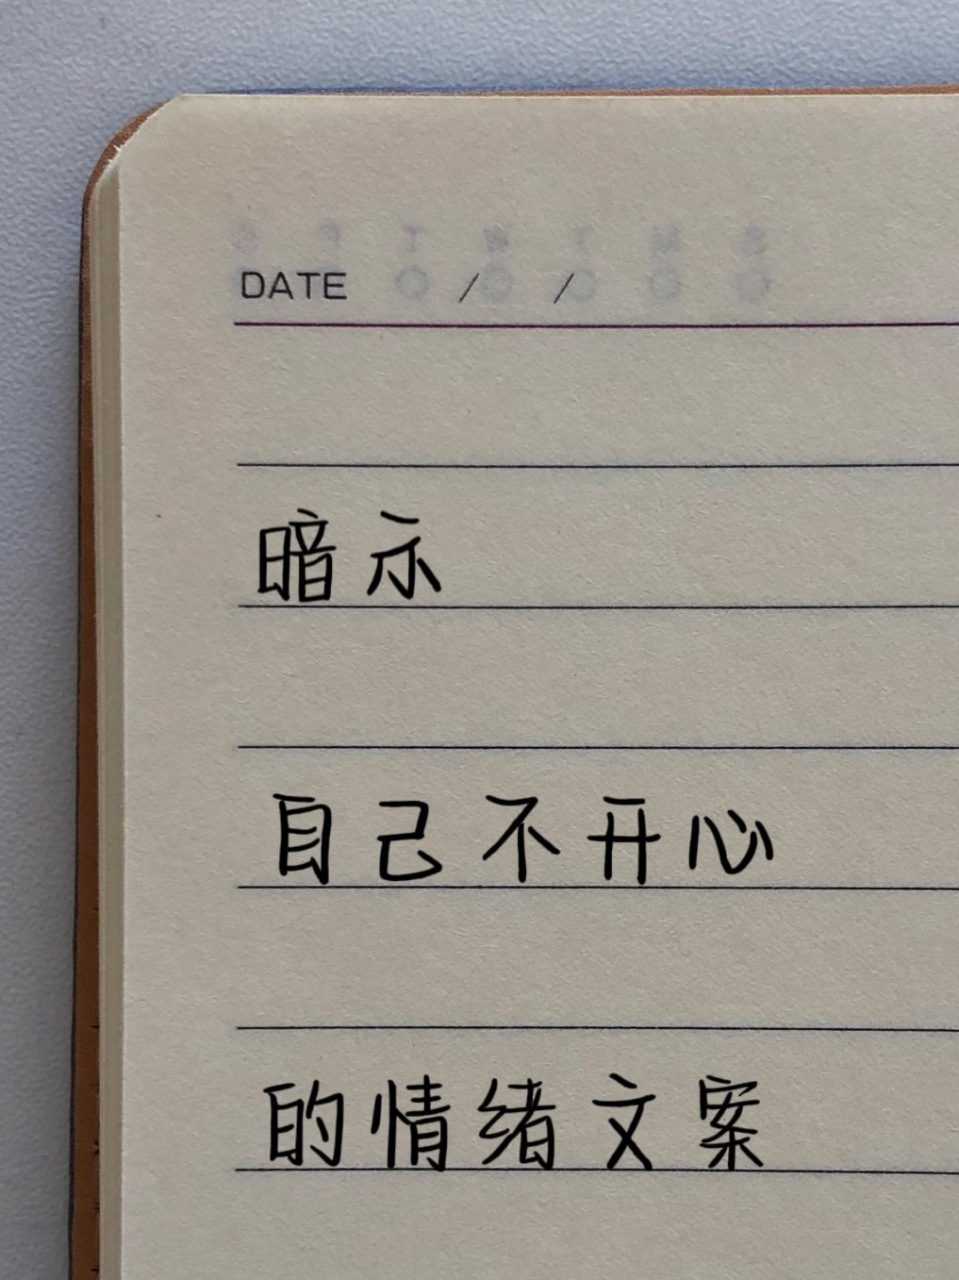 DATE / /
暗示
自己不开心
的情绪文案